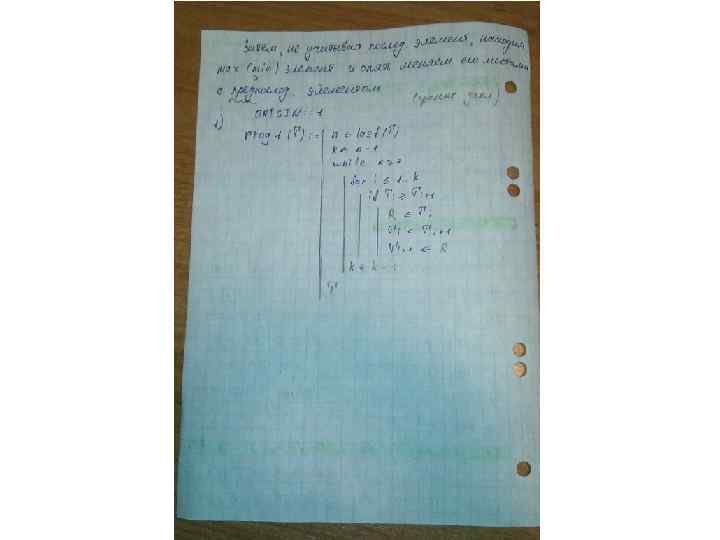 Затем, не учитывая послед. элемент, находим
max (min) элемент и опять меняем его местами
с предпослед. элементом
1) ORIGIN:=1
prog1(T):= n ← last(T)
k ← n-1
while k≥
for i ∈ 1..k
if Ti ≥ Ti+1
R ← Ti
Ti ← Ti+1
Ti+1 ← R
k ← k-1
T